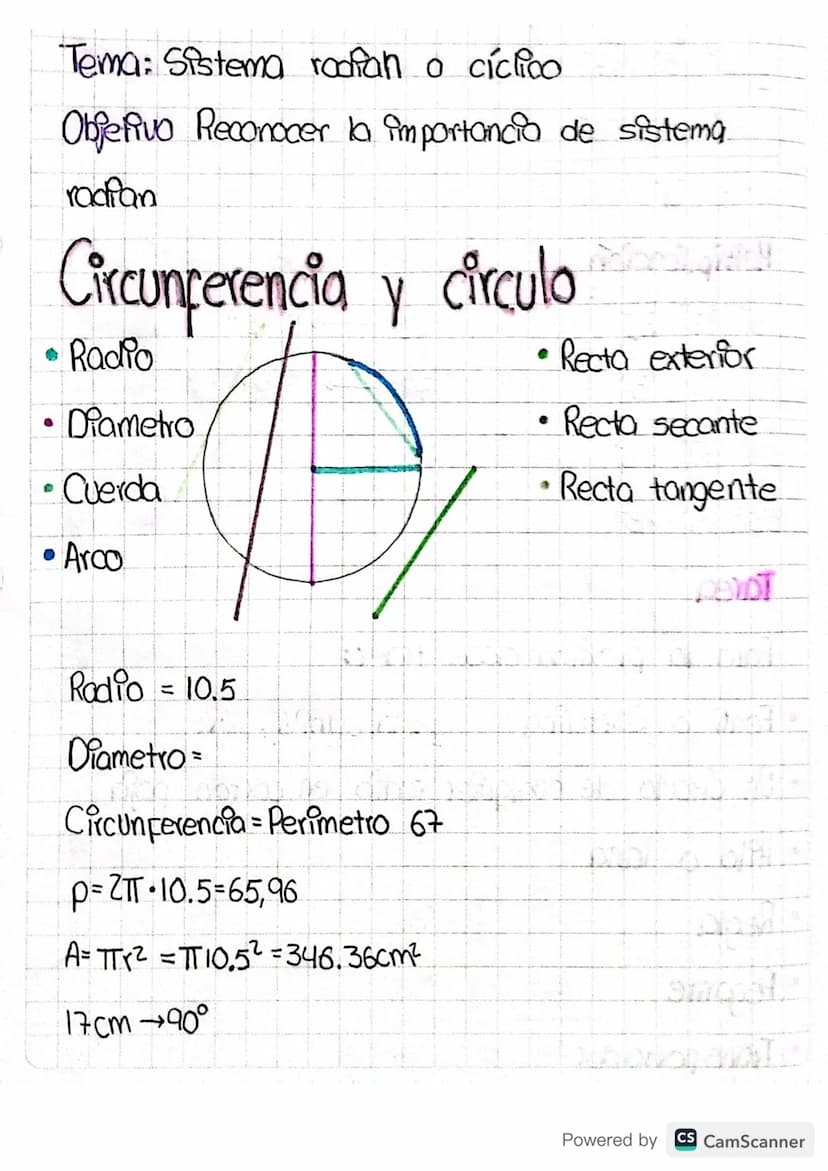 Tema: Sistema radian o cíclico
Objetivo Reconocer la importancia de sistema
radian
Circunferencia y circulo
• Radio
• Diametro
• Cuerda
• Arco
• Recta exterior
• Recta secante
• Recta tangente
Radio = 10.5
Diametro =
Circunferencia = Perimetro 67
p=2π·10.5=65,96
A= πr² =π10.5² =346.36cm²
17cm →90°
Powered by CS CamScanner